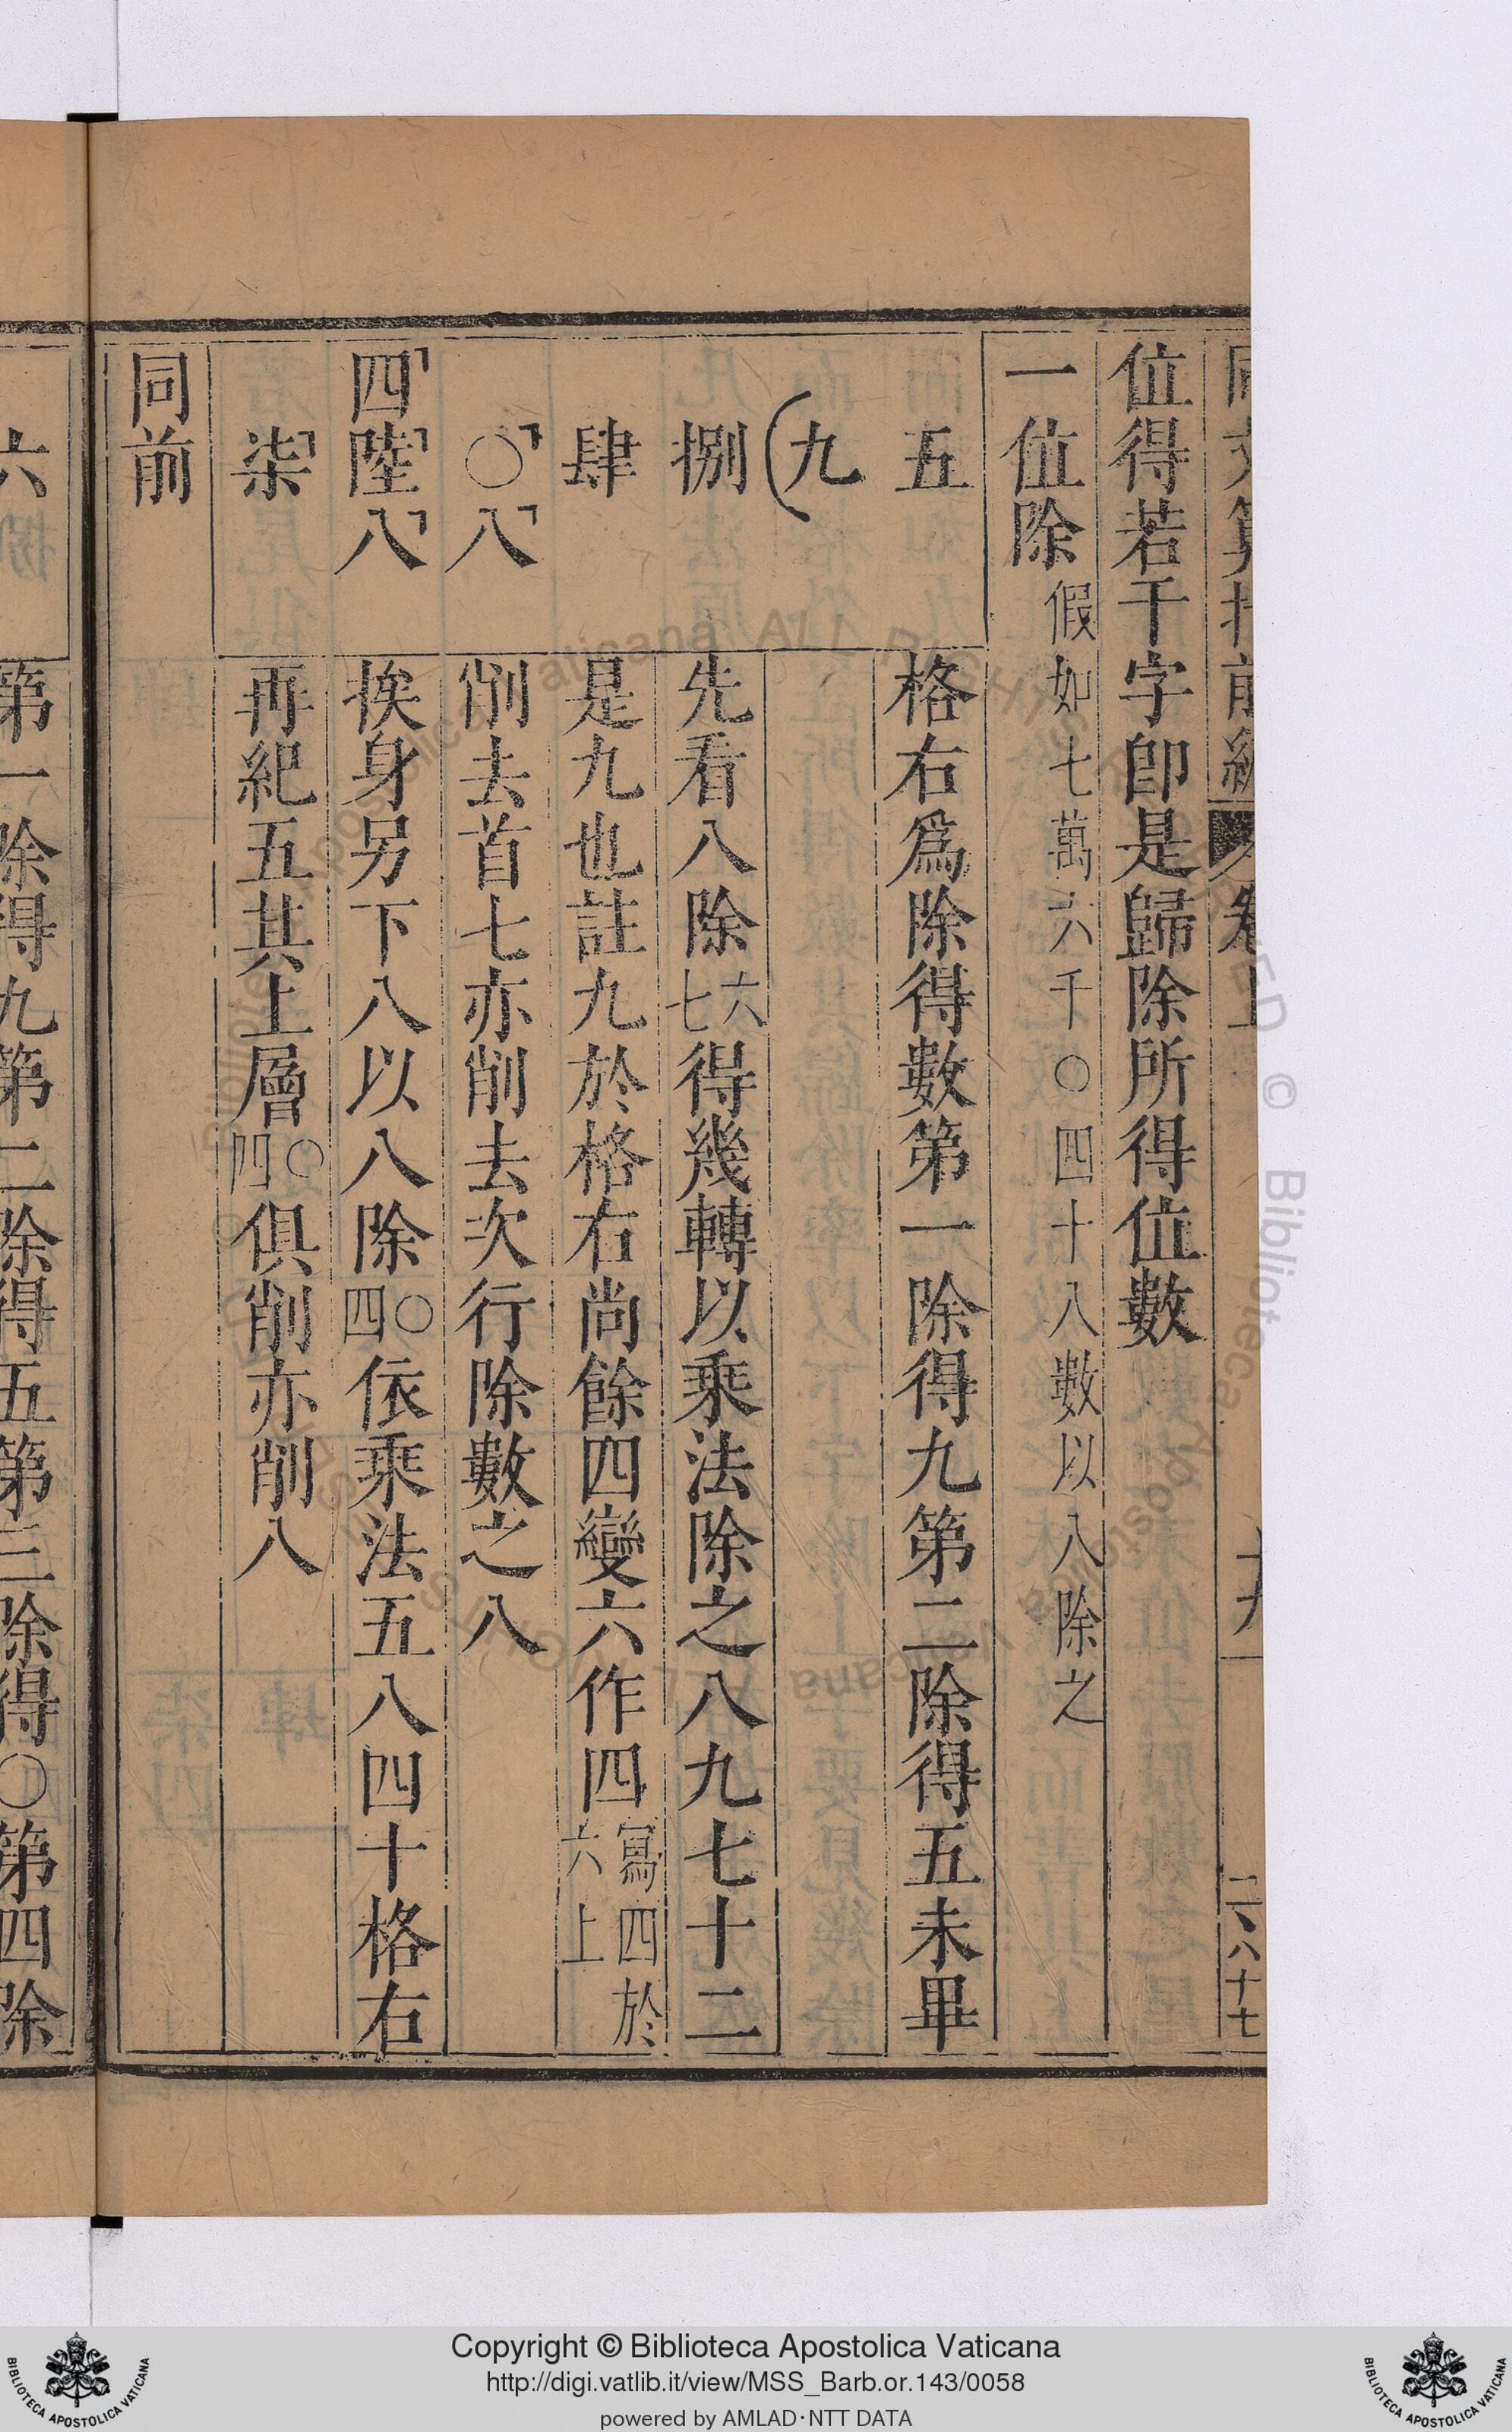 位得若干字卽是歸除所得位數
一位除假如七萬六千〇四十八數以八除之
五
格右爲除得數第一除得九第二除得五未畢
九
捌
先看八除六七得幾轉以乘法除之八九七十二
肆
是九也註九於格右尚餘四變六作四寫四於六上
〇八
削去首七亦削去次行除數之八
四陸八
挨身另下八以八除〇四依乘法五八四十格右
柒
再紀五其上層〇四俱削亦削八
同前
六捌
第一除得九第二除得五第三除得〇第四除
Copyright © Biblioteca Apostolica Vaticana
http://digi.vatlib.it/view/MSS_Barb.or.143/0058
powered by AMLAD·NTT DATA
BIBLIOTECA APOSTOLICA VATICANA
BIBLIOTECA APOSTOLICA VATICANA